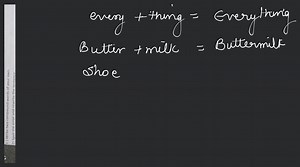 every + thing = Everything
Butter + milk = Buttermilk
Shoe